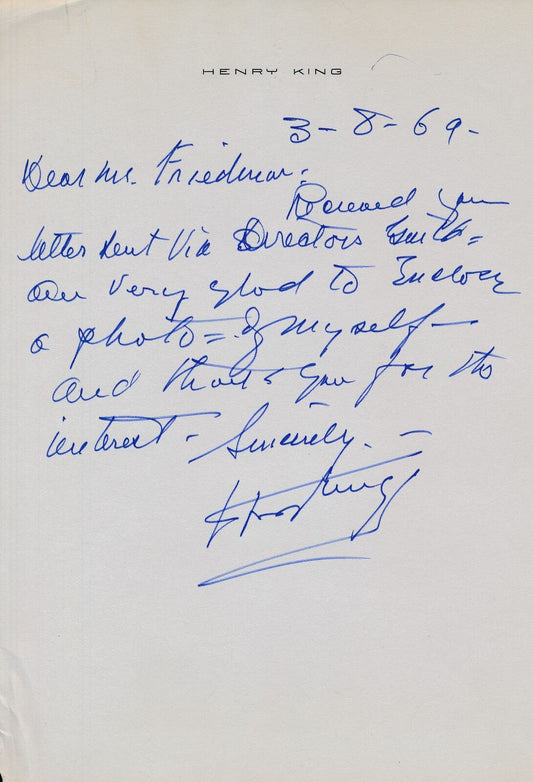 HENRY KING
3-8-69-
Dear Mr. Friedman:
Received your
letter sent Via Directors Guild=
am very glad to Enclose
a photo= of myself—
and thank you for the
interest - Sincerely. —
H King